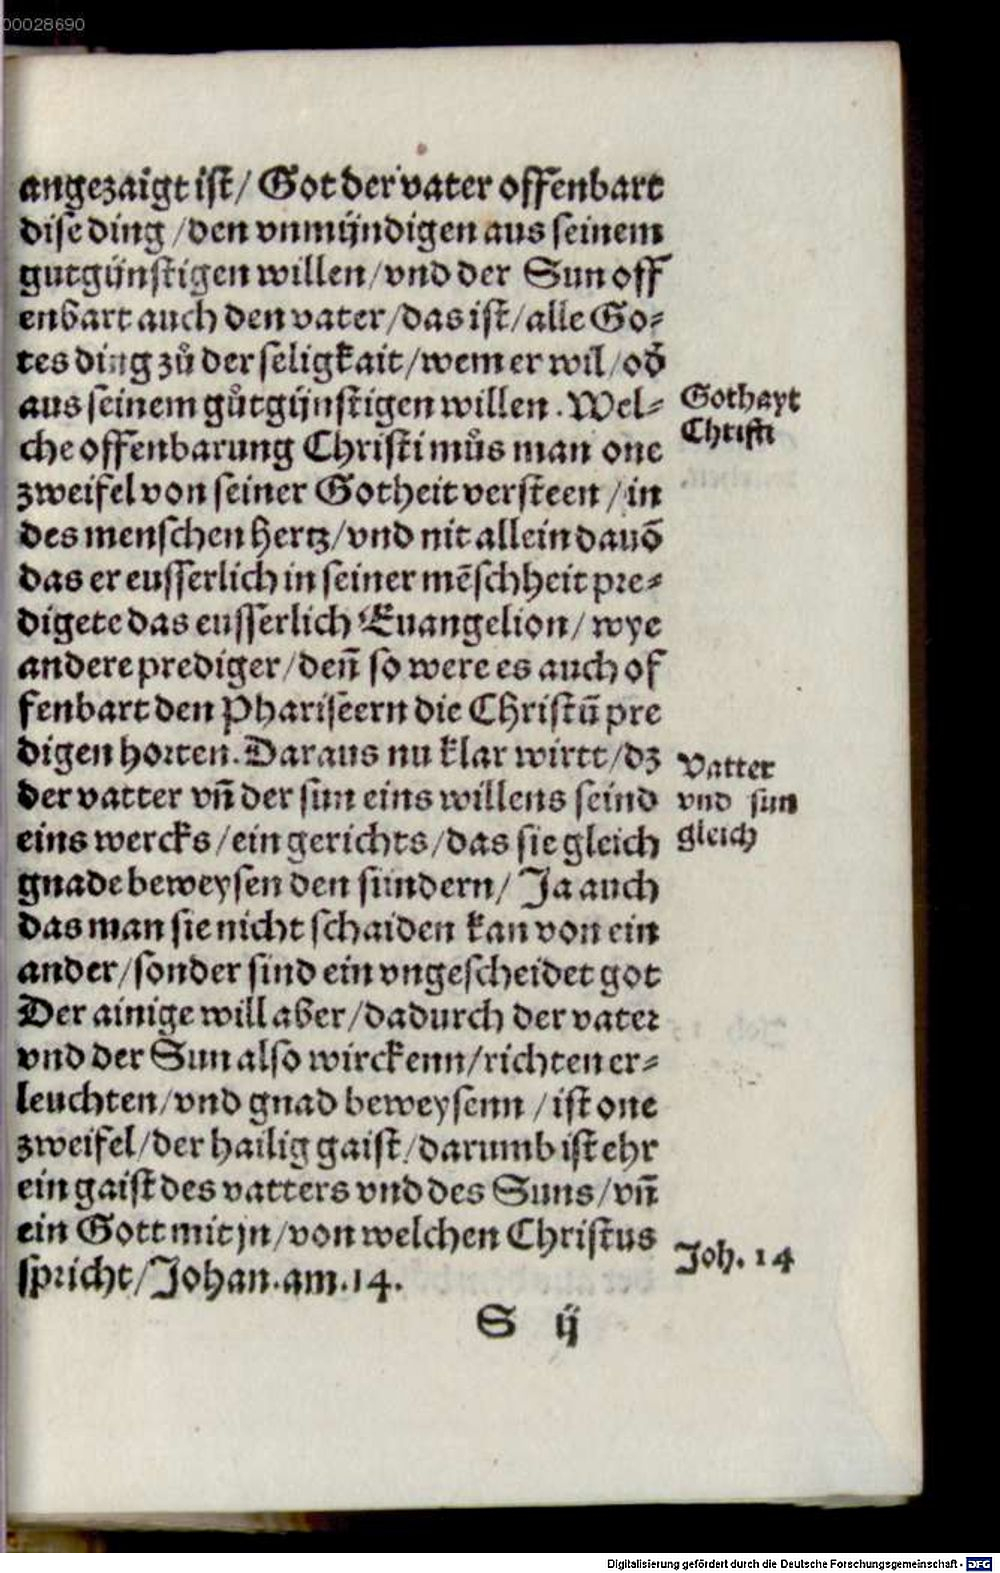 00028690
angezaigt ist/ Got der vater offenbart
dise ding /den vnmijndigen aus seinem
gutgijnstigen willen/vnd der Sun off
enbart auch den vater/das ist/alle Go⸗
tes ding zů der seligkait/wem er wil/od̄
aus seinem gůtgijnstigen willen. Wel⸗
che offenbarung Christi můs man one
zweifel von seiner Gotheit versteen / in
des menschen hertz/vnd nit allein dauō
das er eusserlich in seiner mēschheit pre⸗
digete das eusserlich Euangelion/ wye
andere prediger/den̄ so were es auch of
fenbart den Phariseern die Christū pre
digen horten. Daraus nu klar wirtt/dz
der vatter vn̄ der sun eins willens seind
eins wercks /ein gerichts/das sie gleich
gnade beweysen den sundern/ Ja auch
das man sie nicht schaiden kan von ein
ander/sonder sind ein vngescheidet got
Der ainige will aber/dadurch der vater
vnd der Sun also wirckenn/richten er⸗
leuchten/vnd gnad beweysenn /ist one
zweifel/der hailig gaist/darumb ist ehr
ein gaist des vatters vnd des Suns/vn̄
ein Gott mit jn/von welchen Christus
spricht/Johan.am.14.
S ij
Gothayt
Christi
Vatter
vnd sun
gleich
Joh. 14
Digitalisierung gefördert durch die Deutsche Forschungsgemeinschaft - DFG